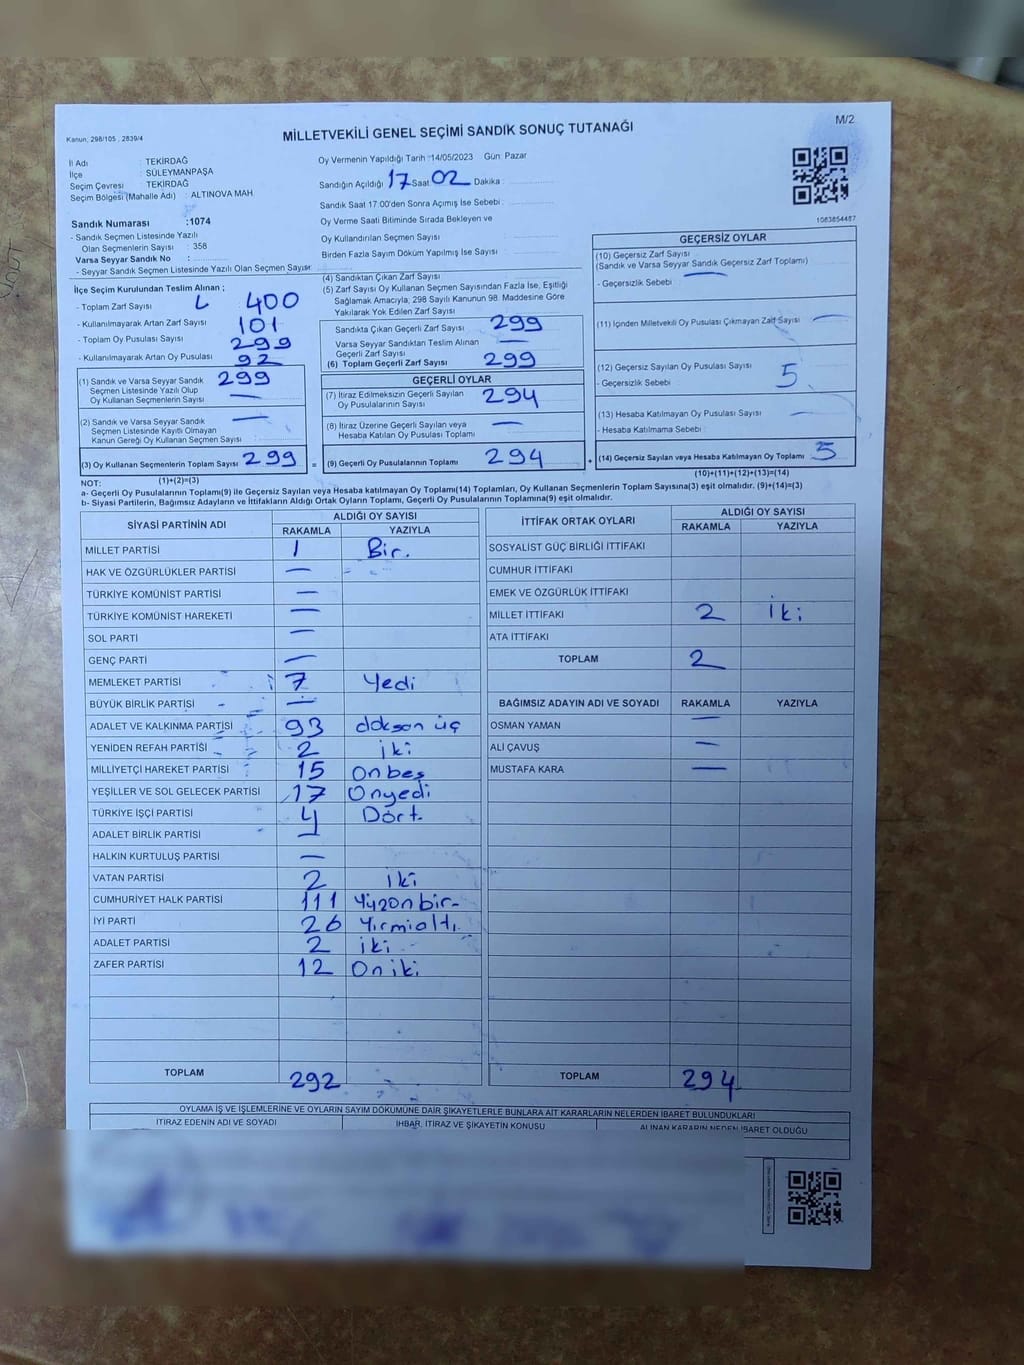 M/2
Kanun; 298/105 , 2839/4
MİLLETVEKİLİ GENEL SEÇİMİ SANDIK SONUÇ TUTANAĞI
İl Adı : TEKİRDAĞ
İlçe : SÜLEYMANPAŞA
Seçim Çevresi : TEKİRDAĞ
Seçim Bölgesi (Mahalle Adı) : ALTINOVA MAH.
Oy Vermenin Yapıldığı Tarih :14/05/2023 Gün: Pazar
Sandığın Açıldığı 17 Saat 02 Dakika :
Sandık Saat 17:00'den Sonra Açımış İse Sebebi :
Oy Verme Saati Bitiminde Sırada Bekleyen ve
Oy Kullandırılan Seçmen Sayısı :
Birden Fazla Sayım Döküm Yapılmış İse Sayısı :
1083854487
Sandık Numarası :1074
- Sandık Seçmen Listesinde Yazılı
Olan Seçmenlerin Sayısı : 358
Varsa Seyyar Sandık No :
- Seyyar Sandık Seçmen Listesinde Yazılı Olan Seçmen Sayısı:
İlçe Seçim Kurulundan Teslim Alınan ;
- Toplam Zarf Sayısı : 400
- Kullanılmayarak Artan Zarf Sayısı : 101
- Toplam Oy Pusulası Sayısı : 299
- Kullanılmayarak Artan Oy Pusulası : 92
(1) Sandık ve Varsa Seyyar Sandık 299
Seçmen Listesinde Yazılı Olup
Oy Kullanan Seçmenlerin Sayısı : —
(2) Sandık ve Varsa Seyyar Sandık —
Seçmen Listesinde Kayıtlı Olmayan
Kanun Gereği Oy Kullanan Seçmen Sayısı :
(3) Oy Kullanan Seçmenlerin Toplam Sayısı : 299 =
(1)+(2)=(3)
(4) Sandıktan Çıkan Zarf Sayısı :
(5) Zarf Sayısı Oy Kullanan Seçmen Sayısından Fazla İse, Eşitliği
Sağlamak Amacıyla, 298 Sayılı Kanunun 98. Maddesine Göre
Yakılarak Yok Edilen Zarf Sayısı :
Sandıkta Çıkan Geçerli Zarf Sayısı : 299
Varsa Seyyar Sandıktan Teslim Alınan —
Geçerli Zarf Sayısı
(6) Toplam Geçerli Zarf Sayısı : 299
GEÇERLİ OYLAR
(7) İtiraz Edilmeksizin Geçerli Sayılan 294
Oy Pusulalarının Sayısı
(8) İtiraz Üzerine Geçerli Sayılan veya —
Hesaba Katılan Oy Pusulası Toplamı
(9) Geçerli Oy Pusulalarının Toplamı 294 +
GEÇERSİZ OYLAR
(10) Geçersiz Zarf Sayısı
(Sandık ve Varsa Seyyar Sandık Geçersiz Zarf Toplamı) —
- Geçersizlik Sebebi :
(11) İçinden Milletvekili Oy Pusulası Çıkmayan Zarf Sayısı —
(12) Geçersiz Sayılan Oy Pusulası Sayısı : 5
- Geçersizlik Sebebi :
(13) Hesaba Katılmayan Oy Pusulası Sayısı : —
- Hesaba Katılmama Sebebi :
(14) Geçersiz Sayılan veya Hesaba Katılmayan Oy Toplamı 5
(10)+(11)+(12)+(13)=(14)
NOT:
a- Geçerli Oy Pusulalarının Toplamı(9) ile Geçersiz Sayılan veya Hesaba katılmayan Oy Toplamı(14) Toplamları, Oy Kullanan Seçmenlerin Toplam Sayısına(3) eşit olmalıdır. (9)+(14)=(3)
b- Siyasi Partilerin, Bağımsız Adayların ve İttifakların Aldığı Ortak Oyların Toplamı, Geçerli Oy Pusulalarının Toplamına(9) eşit olmalıdır.
SİYASİ PARTİNİN ADI ALDIĞI OY SAYISI
RAKAMLA YAZIYLA
MİLLET PARTİSİ 1 Bir.
HAK VE ÖZGÜRLÜKLER PARTİSİ —
TÜRKİYE KOMÜNİST PARTİSİ —
TÜRKİYE KOMÜNİST HAREKETİ —
SOL PARTİ —
GENÇ PARTİ —
MEMLEKET PARTİSİ 7 Yedi
BÜYÜK BİRLİK PARTİSİ —
ADALET VE KALKINMA PARTİSİ 93 dokson üç
YENİDEN REFAH PARTİSİ 2 iki
MİLLİYETÇİ HAREKET PARTİSİ 15 Onbeş
YEŞİLLER VE SOL GELECEK PARTİSİ 17 Onyedi
TÜRKİYE İŞÇİ PARTİSİ 4 Dört.
ADALET BİRLİK PARTİSİ —
HALKIN KURTULUŞ PARTİSİ —
VATAN PARTİSİ 2 iki
CUMHURİYET HALK PARTİSİ 111 Yüzonbir-
İYİ PARTİ 26 Yırmialtı.
ADALET PARTİSİ 2 iki
ZAFER PARTİSİ 12 Oniki
TOPLAM 292
İTTİFAK ORTAK OYLARI ALDIĞI OY SAYISI
RAKAMLA YAZIYLA
SOSYALİST GÜÇ BİRLİĞİ İTTİFAKI
CUMHUR İTTİFAKI
EMEK VE ÖZGÜRLÜK İTTİFAKI
MİLLET İTTİFAKI 2 iki
ATA İTTİFAKI
TOPLAM 2
BAĞIMSIZ ADAYIN ADI VE SOYADI RAKAMLA YAZIYLA
OSMAN YAMAN —
ALİ ÇAVUŞ —
MUSTAFA KARA —
TOPLAM 294
OYLAMA İŞ VE İŞLEMLERİNE VE OYLARIN SAYIM DÖKÜMÜNE DAİR ŞİKAYETLERLE BUNLARA AİT KARARLARIN NELERDEN İBARET BULUNDUKLARI
İTİRAZ EDENİN ADI VE SOYADI İHBAR, İTİRAZ VE ŞİKAYETİN KONUSU ALINAN KARARIN NEDEN İBARET OLDUĞU